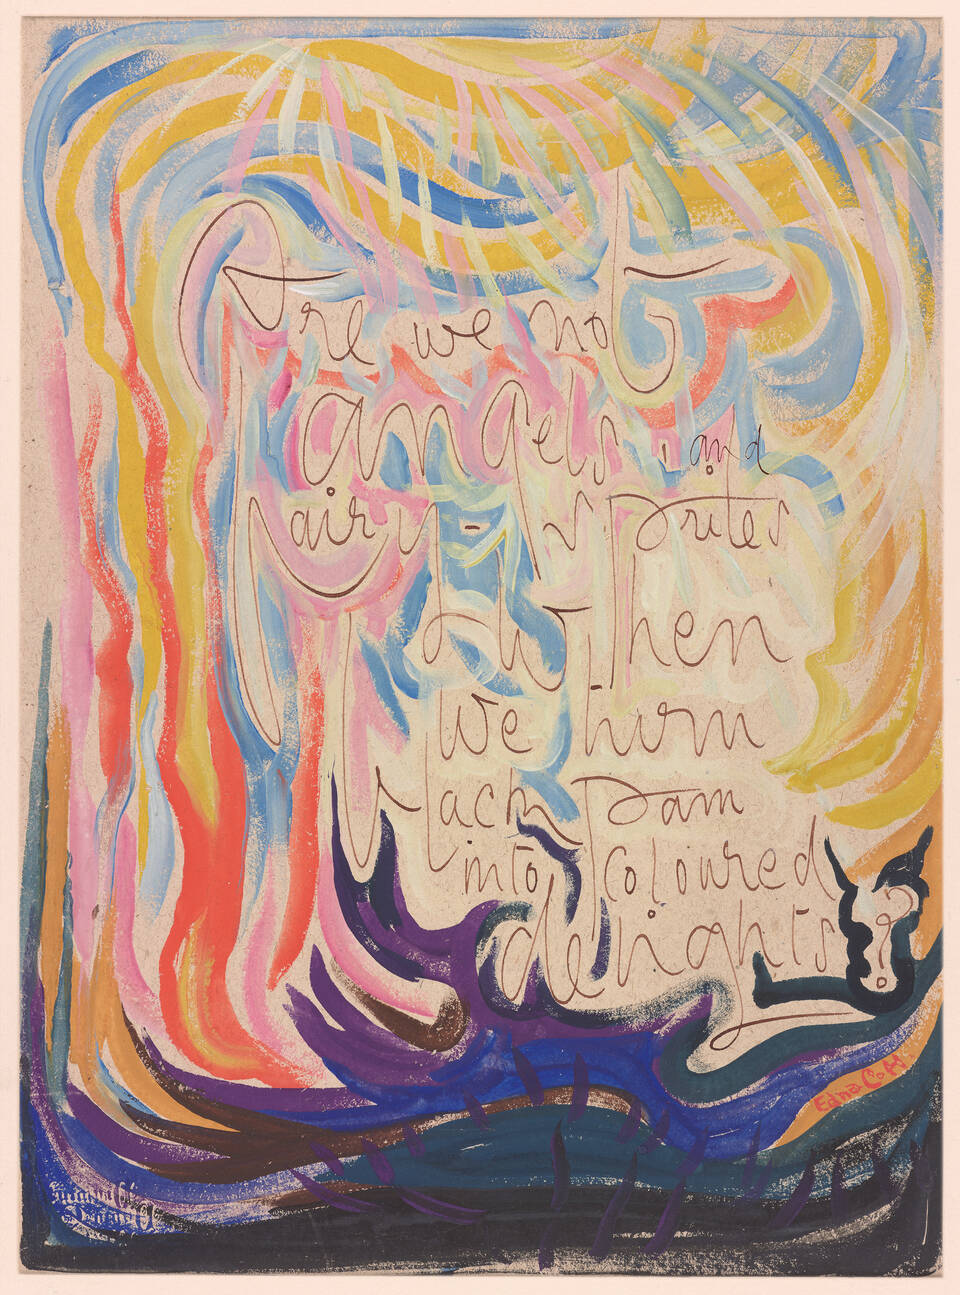 Are we not
angels and
fairy-sprites
When
we turn
black Pain
into coloured
delights?
Edna